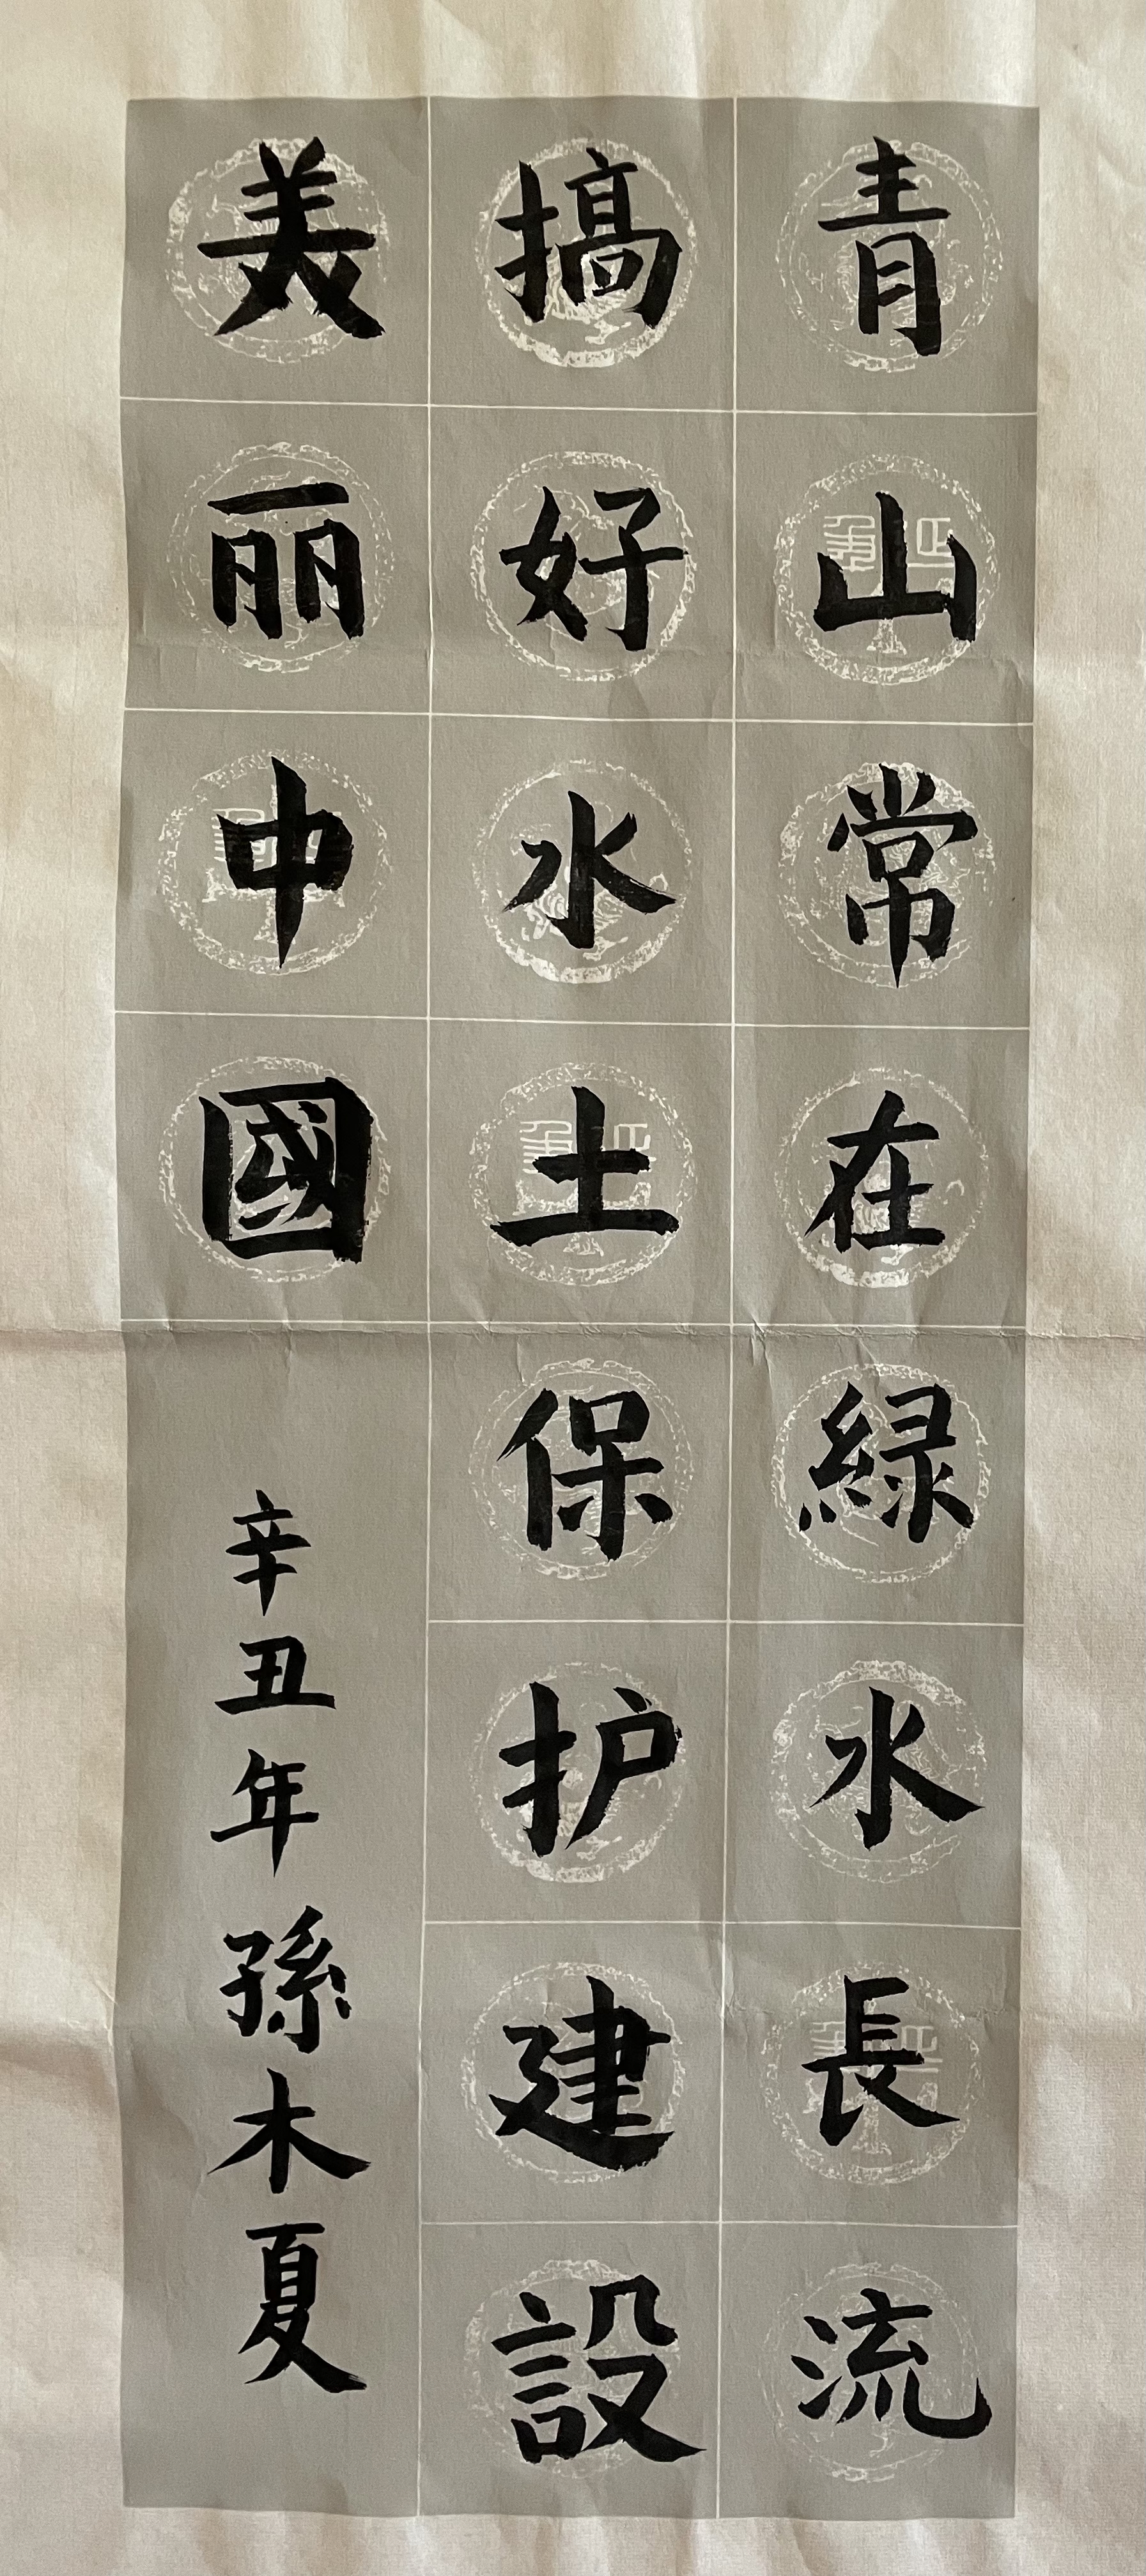 青山常在緑水長流
搞好水土保护建設
美丽中國
辛丑年孫木夏